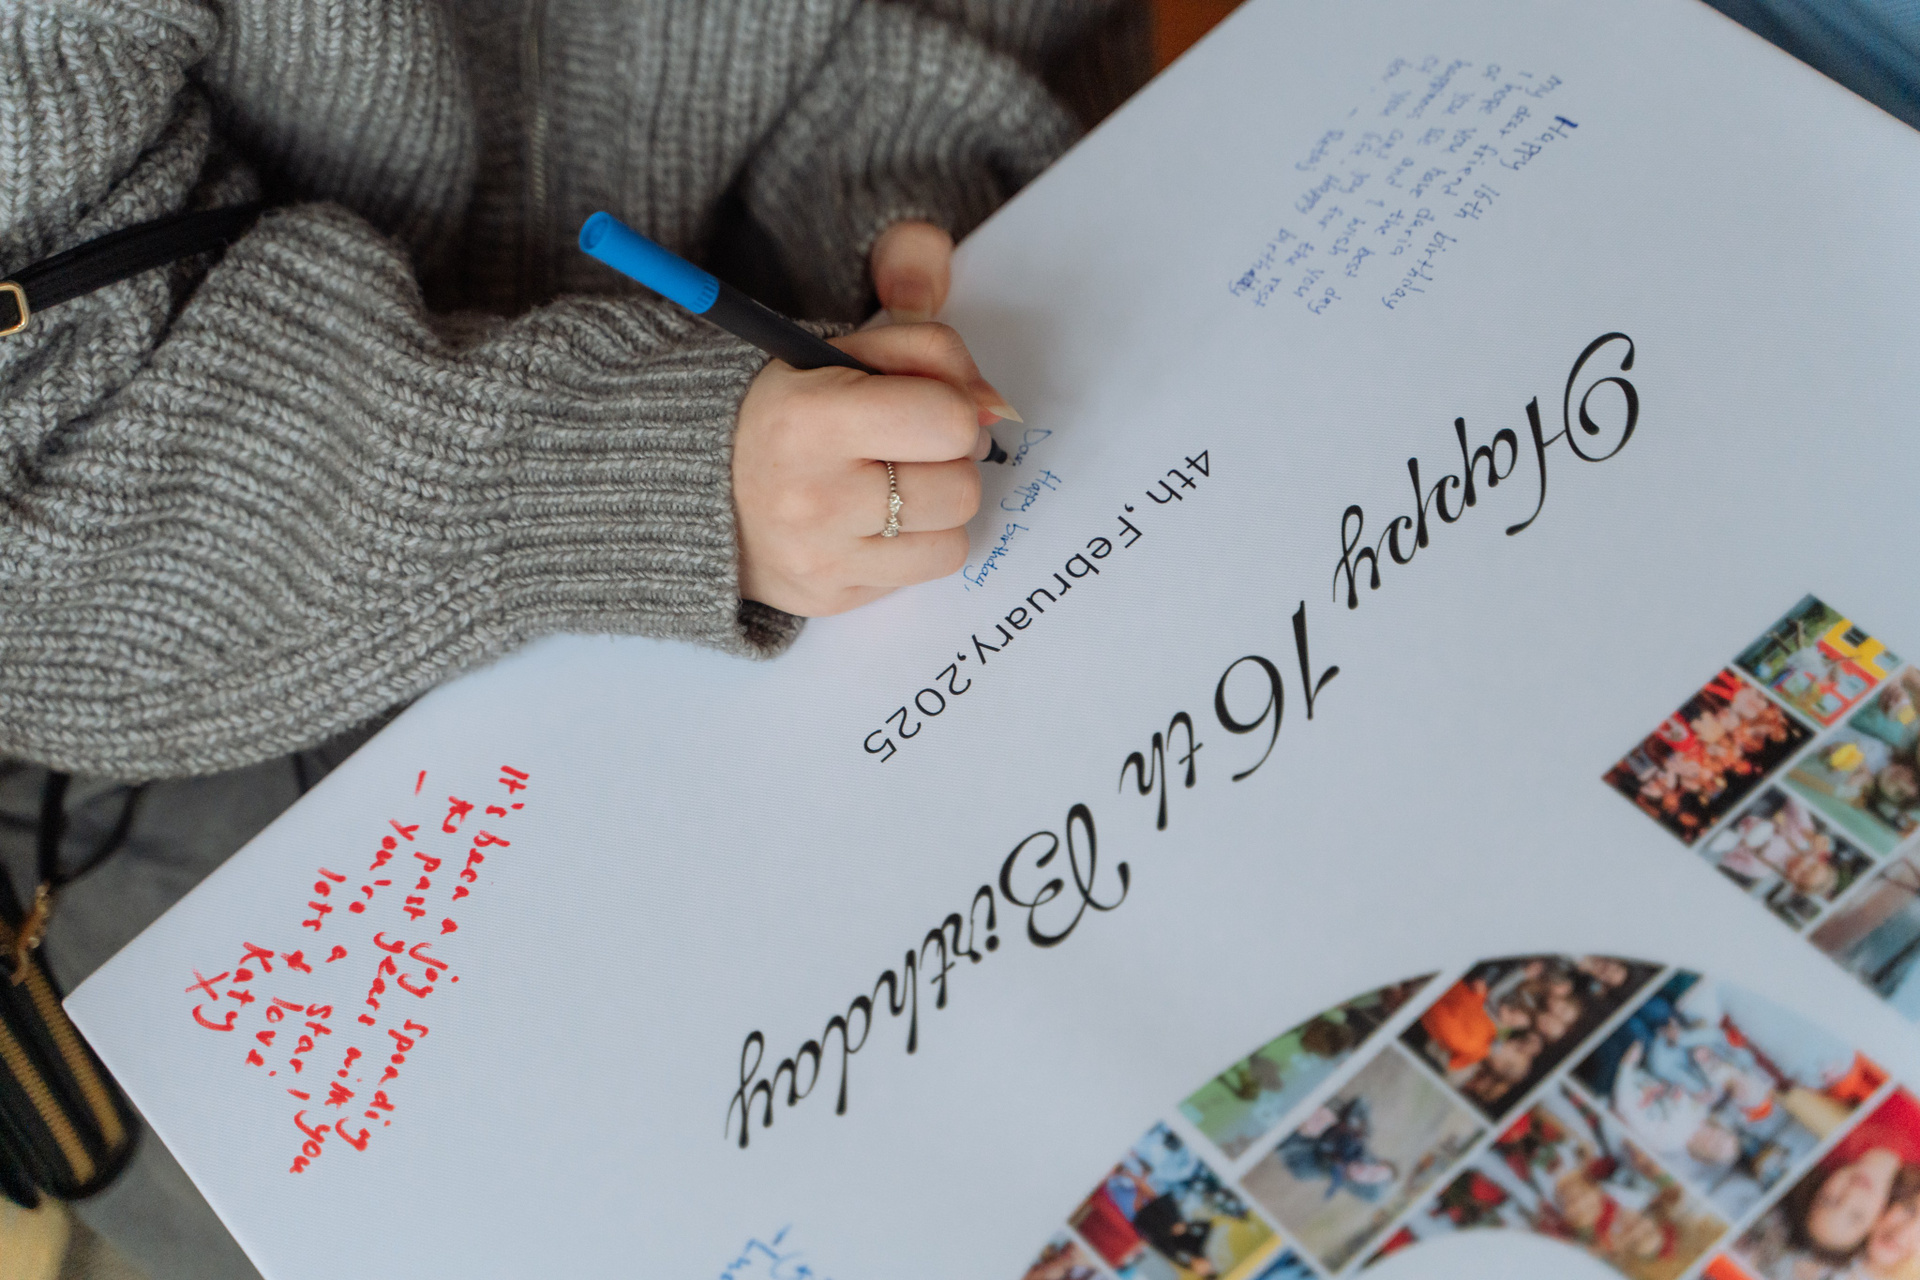 Happy 16th Birthday
4th,February,2025
Happy 16th birthday
my dear friend daria
I hope you have the best day
of you life and I wish you
happiness and joy for the rest
of you life. Happy birthday
Happy birthday,
It's been a joy spendig
past years
- You're a star, you
lots & love
Katy
X